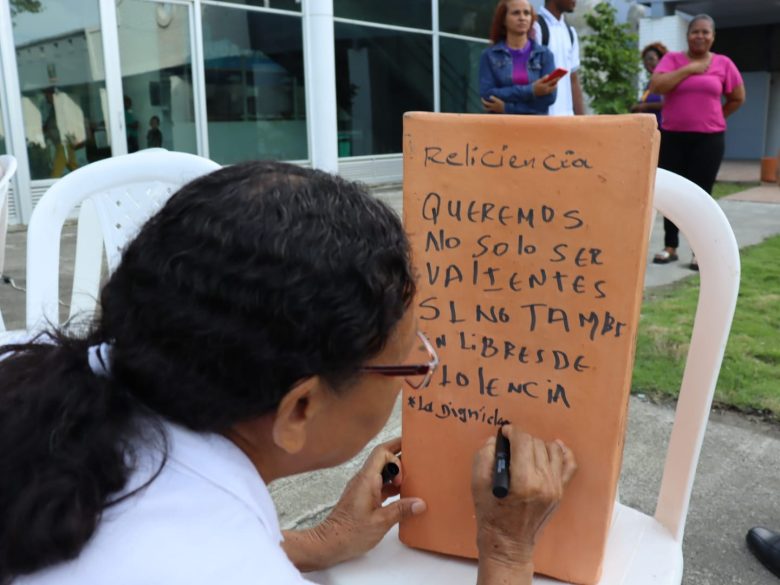 Reliciencia
QUEREMOS
No solo SER
VALIENTES
SINO TAMBI
EN LIBRES DE
VIOLENCIA
*La Dignidad